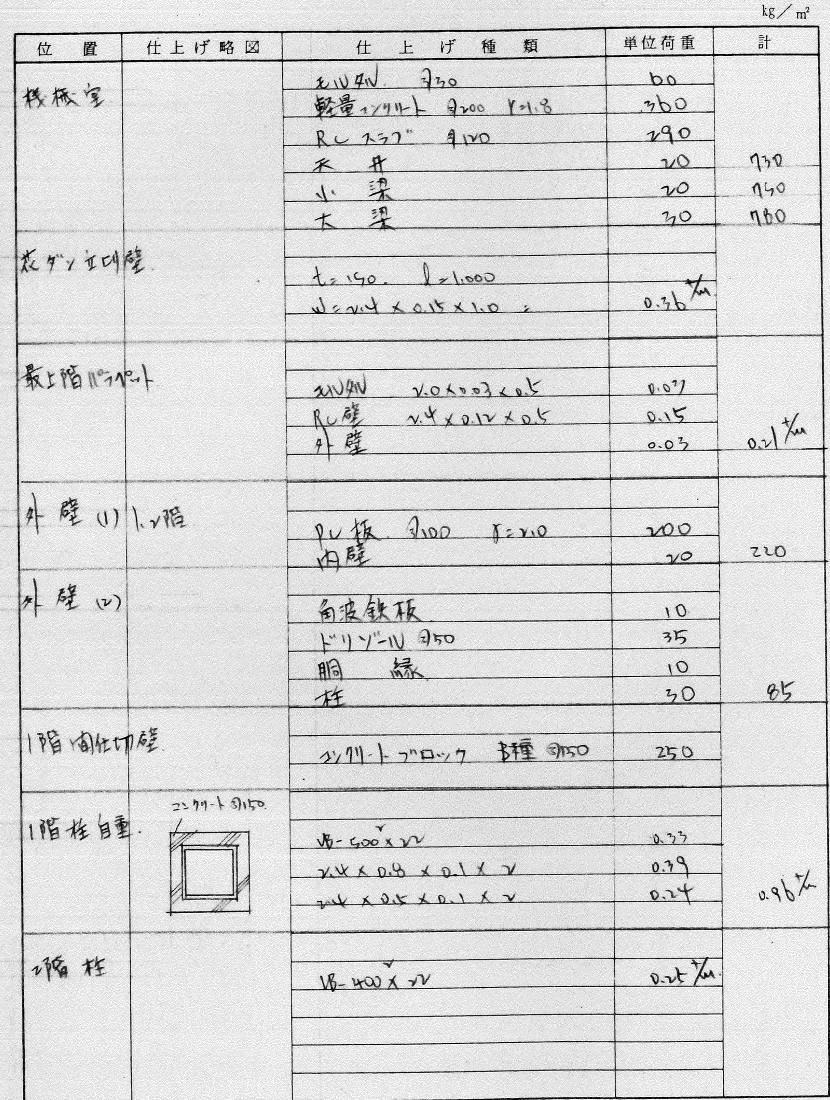 kg／m²
位置 仕上げ略図 仕上げ種類 単位荷重 計
機械室 モルタル ㋐30 60
軽量コンクリート ㋐200 γ=1.8 360
RCスラブ ㋐120 290
天井 20 730
小梁 20 750
大梁 30 780
花ダン立切壁
t=150. l=1.000
W=2.4×0.15×1.0 = 0.36 t/m
最上階パラペット
モルタル 2.0×0.03×0.5 0.03
RC壁 2.4×0.12×0.5 0.15
外壁 0.03 0.21 t/m
外壁(1) 1.2階
PC板 ㋐100 γ=2.0 200
内壁 20 220
外壁(2) 角波鉄板 10
ドリゾール ㋐50 35
胴縁 10
柱 30 85
1階間仕切壁 コンクリートブロック B種 ㋐150 250
コンクリート ㋐150
1階柱自重. 500 × 22 0.33
2.4×0.8×0.1×2 0.39
2.4×0.5×0.1×2 0.24 0.96 t/m
2階柱 400 × 22 0.25 t/m